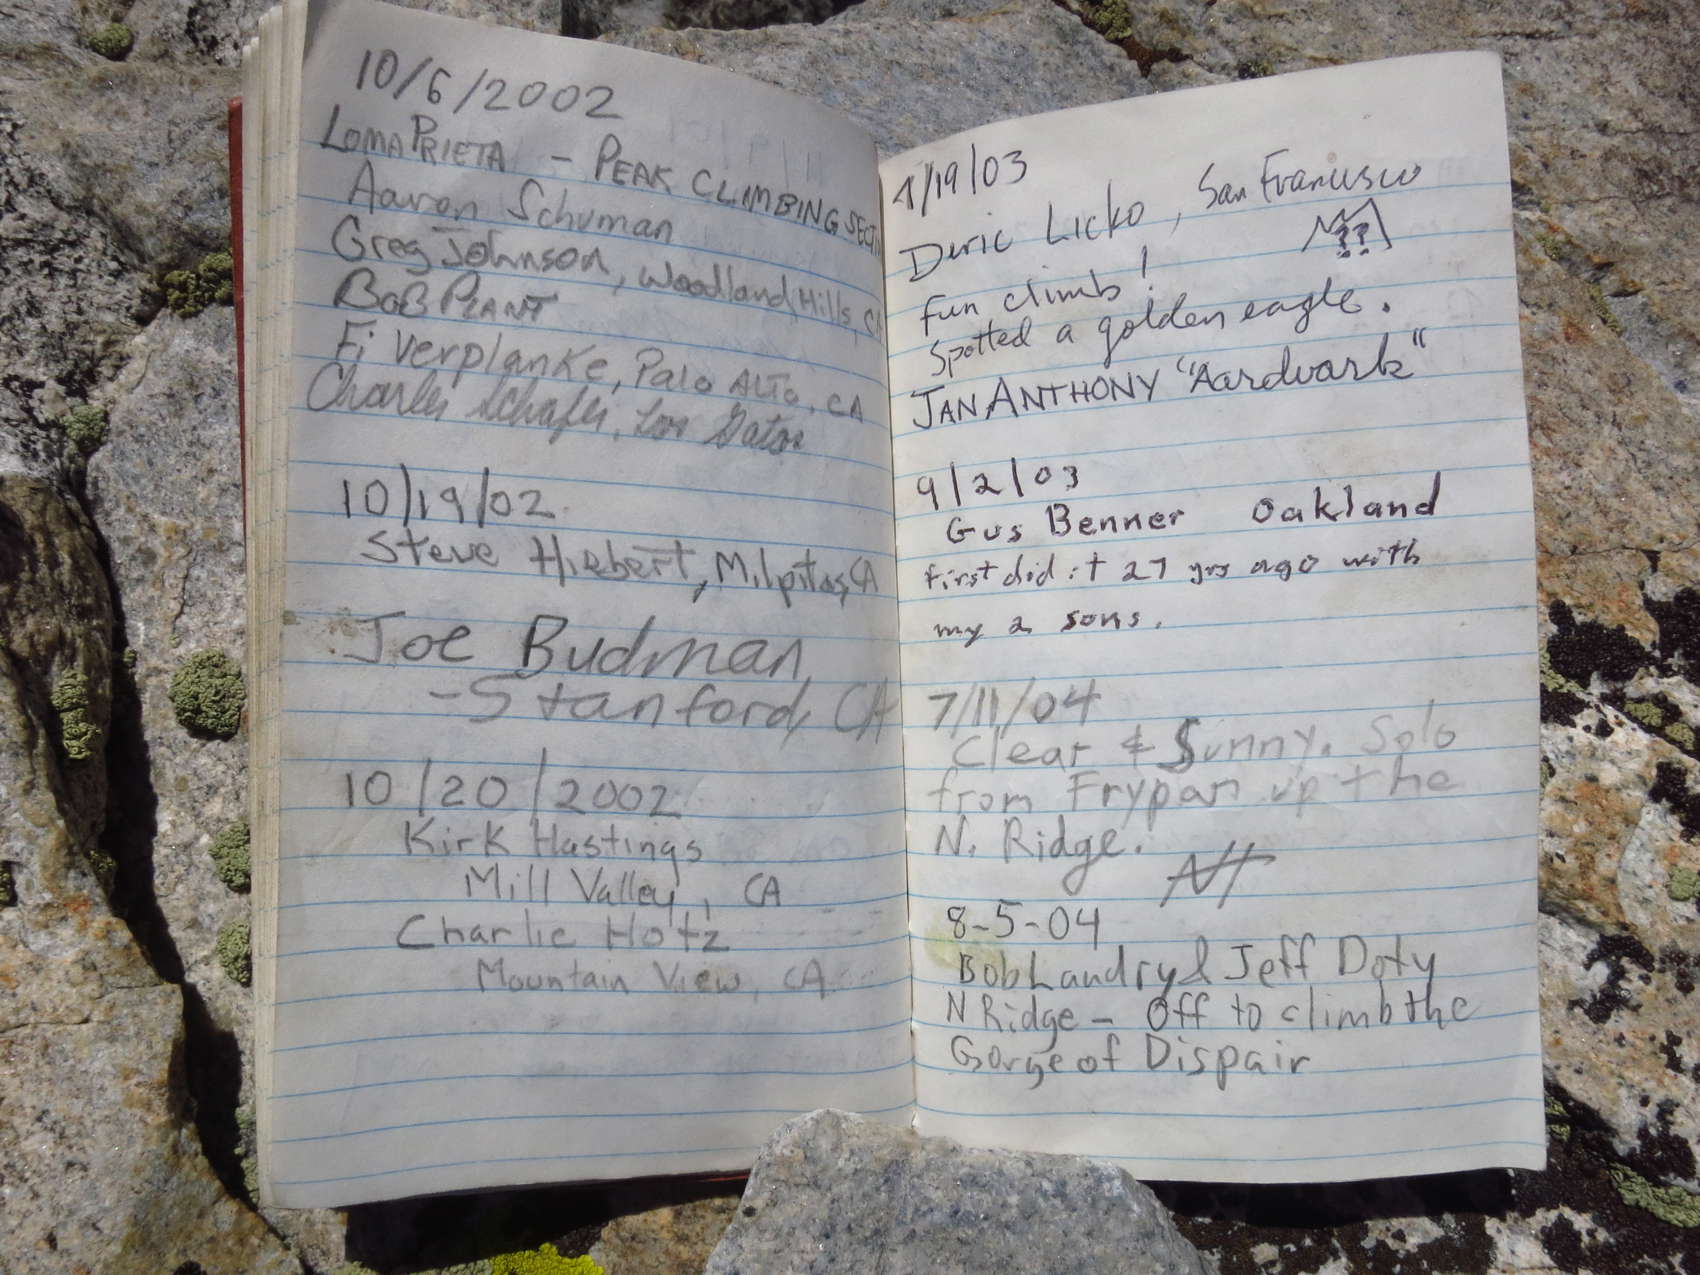 10/6/2002
LOMA PRIETA - PEAK CLIMBING SECTI
Aaron Schuman
Greg Johnson, Woodland Hills, CA
BOB PLANT
Fi Verplanke, Palo ALTo, CA
Charles Schafer, Los Gatos
10/19/02
Steve Hiebert, Milpitas, CA
Joe Budman
- Stanford, CA
10/20/2002
Kirk Hastings
Mill Valley, CA
Charlie Hotz
Mountain View, CA
/19/03
Deric Licko, San Francisco
??
fun climb!
Spotted a golden eagle.
JAN ANTHONY "Aardvark"
9/2/03
Gus Benner Oakland
first did it 27 yrs ago with
my 2 sons.
7/11/04
Clear & Sunny. Solo
from Frypan up the
N. Ridge.
8-5-04
Bob Landry & Jeff Doty
N Ridge - Off to climb the
Gorge of Dispair